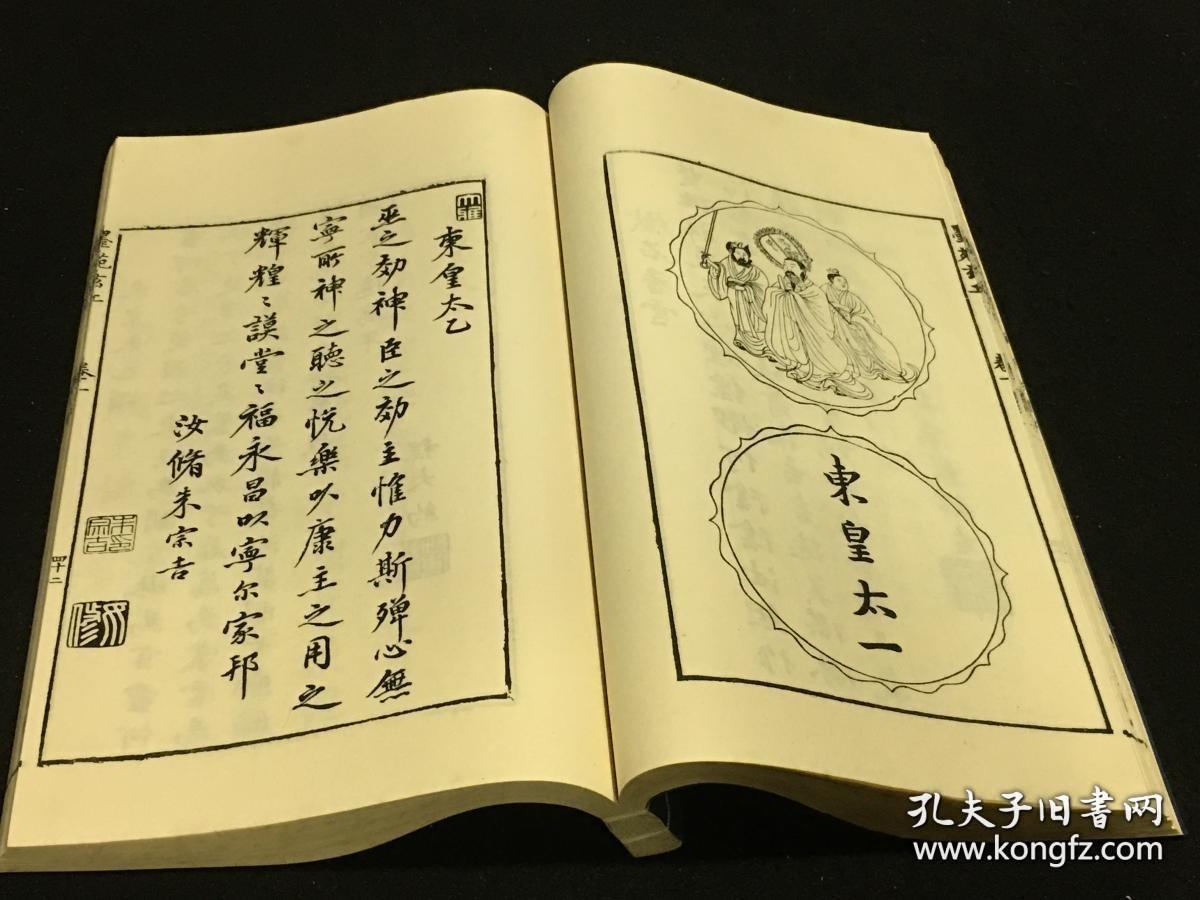 東皇太一
東皇太乙
巫之効神臣之効主惟力斯殫心無
寧所神之聽之悦樂以康主之用之
輝煌〻謨堂〻福永昌以寧尔家邦
汝脩朱宗吉
朱宗吉印
卷一
四十二
孔夫子旧书网
www.kongfz.com